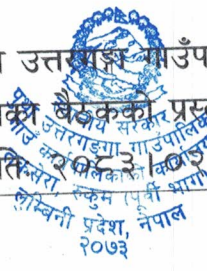 उत्तरगङ्गा गाउँप
बैठकको प्रस्
२०८३।०३
स्थानीय सरकार
उत्तरगङ्गा गाउँपालिका
गाउँ कार्यपालिकाको कार्यालय
रुकुम (पूर्वी भाग)
लुम्बिनी प्रदेश, नेपाल
२०७३